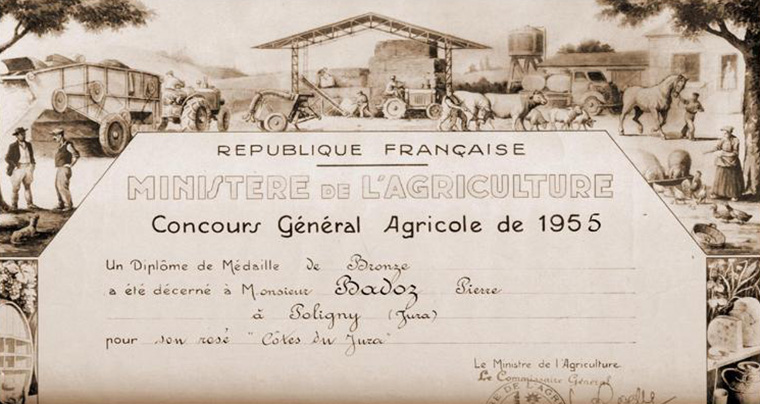 REPUBLIQUE FRANÇAISE
MINISTÈRE DE L'AGRICULTURE
Concours Général Agricole de 1955
Un Diplôme de Médaille de Bronze
a été décerné à Monsieur Badoz Pierre
à Poligny (Jura)
pour son rosé "Côtes du Jura"
Le Ministre de l'Agriculture
Le Commissaire Général